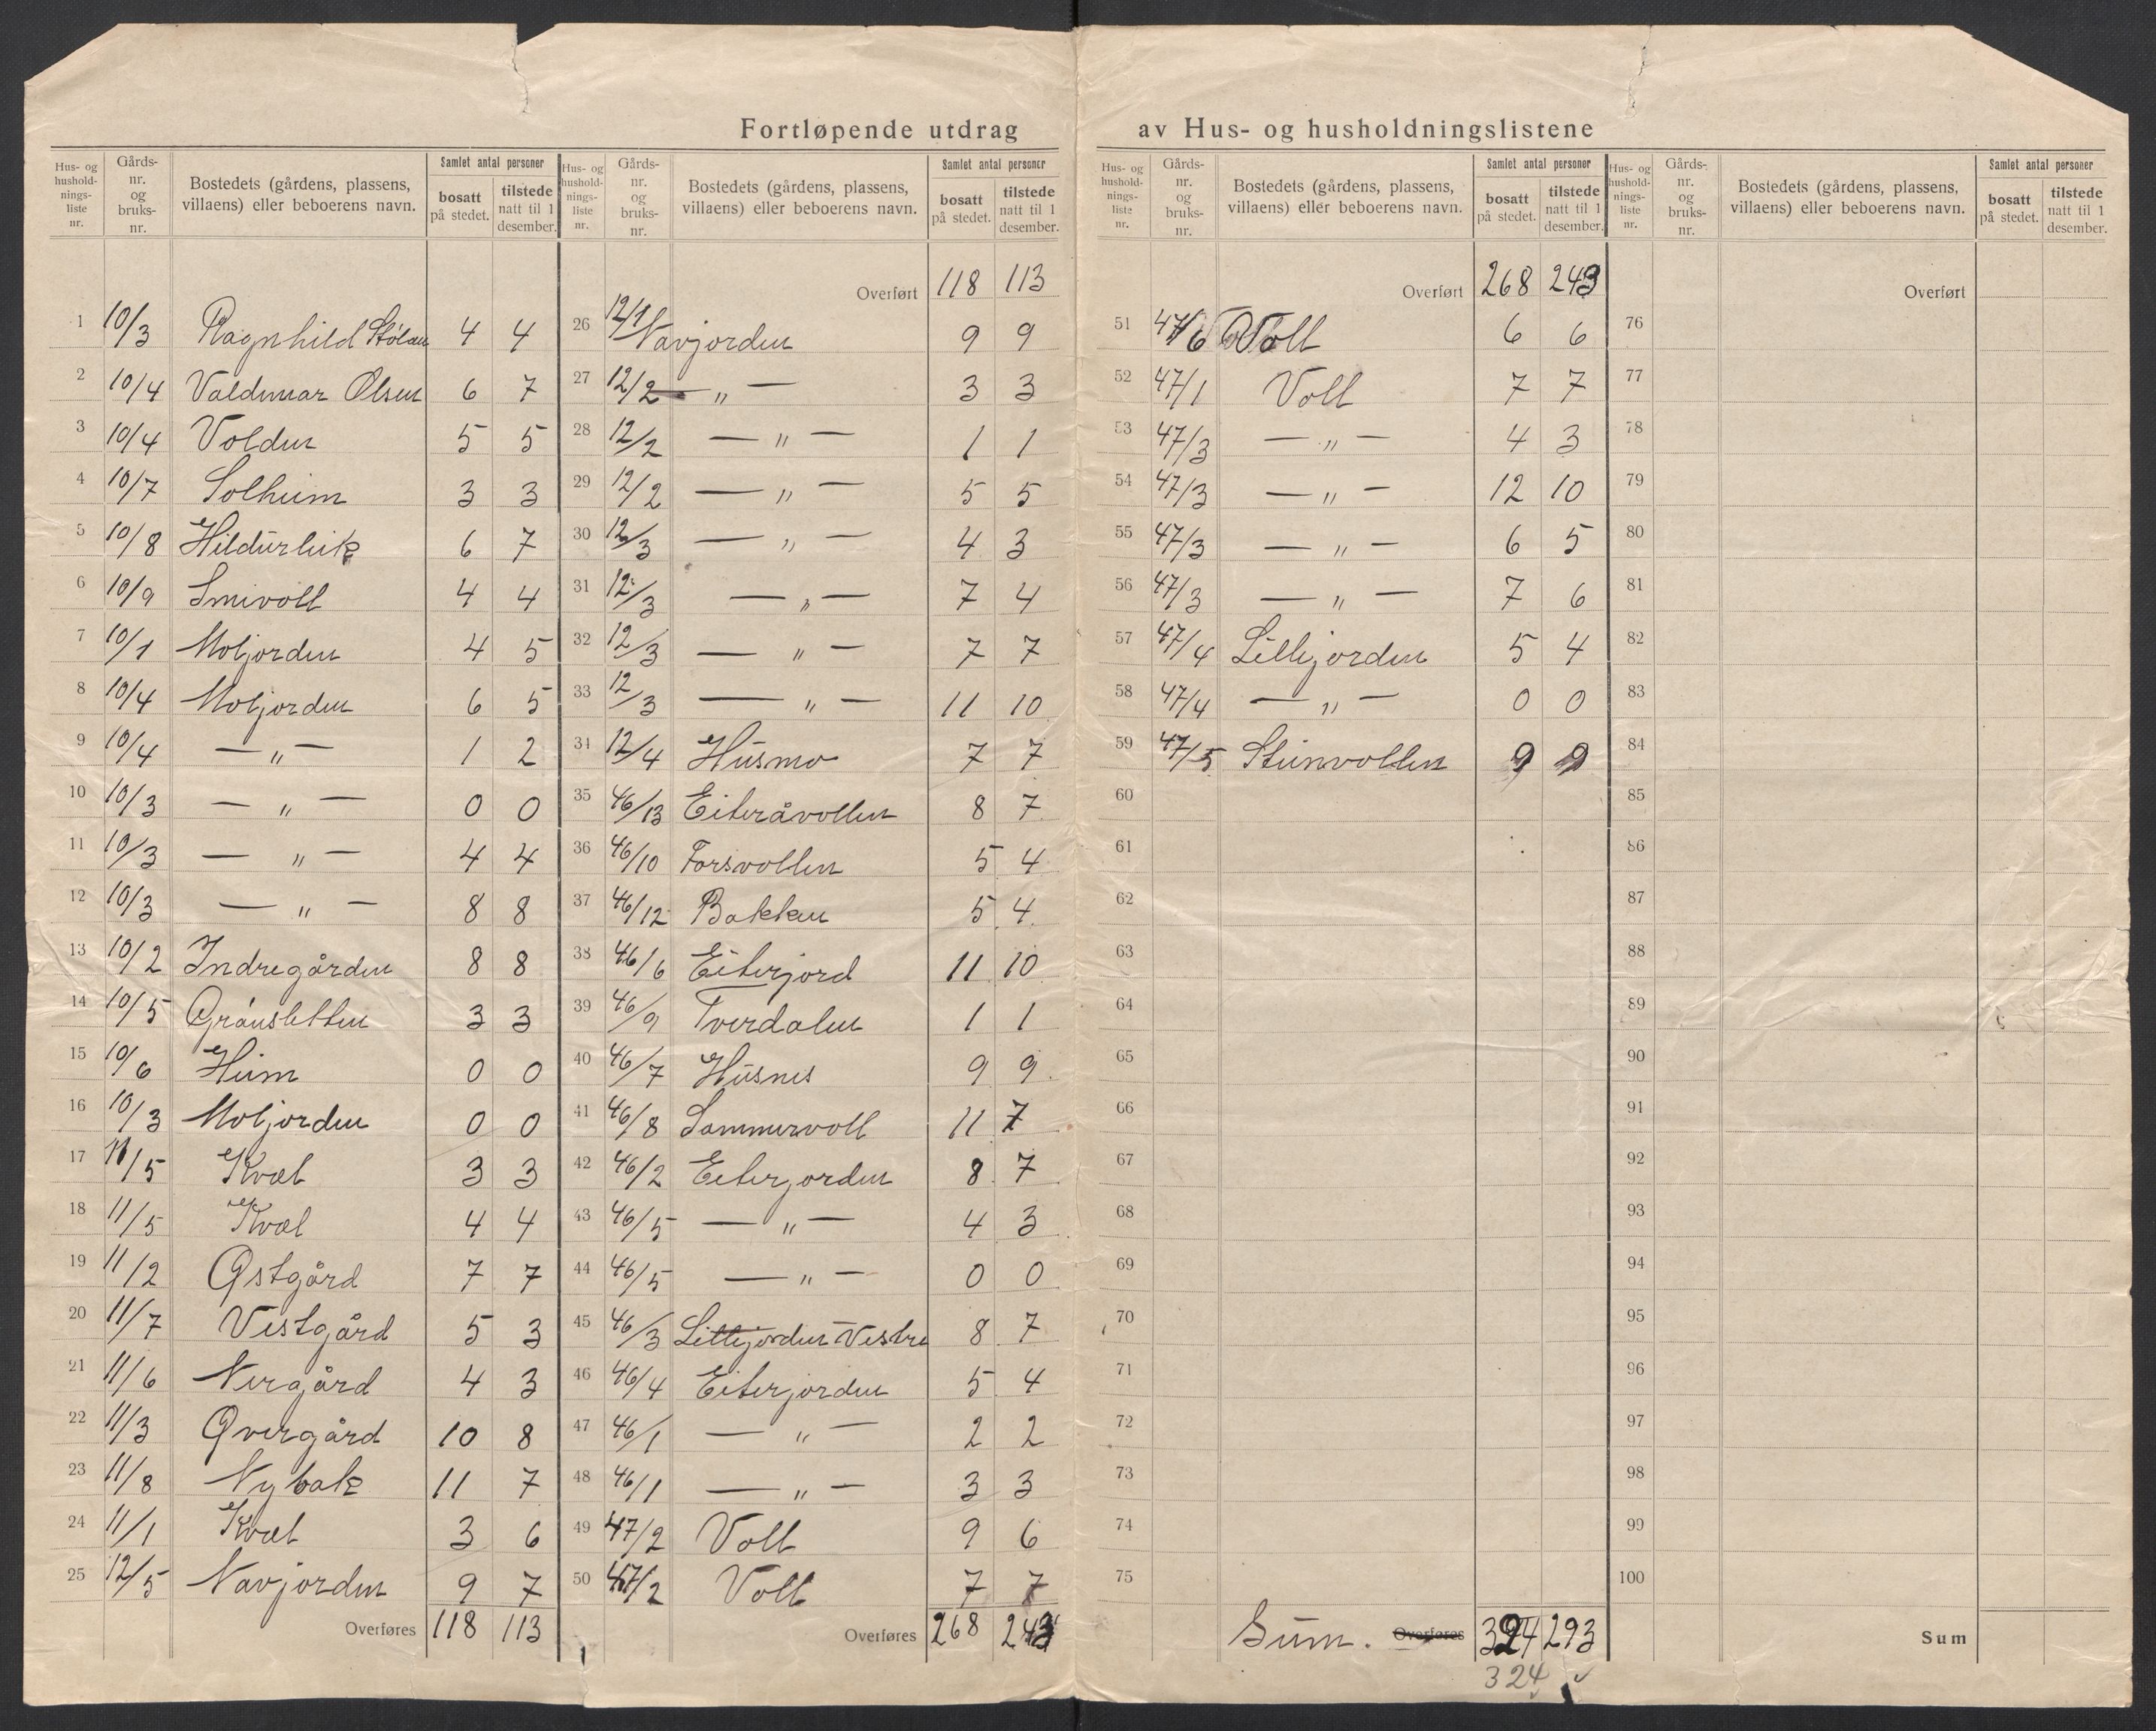 Fortløpende utdrag av Hus- og husholdningslistene
Hus- og husholdnings-liste nr. | Gårds-nr. og bruks-nr. | Bostedets (gårdens, plassens, villaens) eller beboerens navn. | Samlet antal personer bosatt på stedet. | tilstede natt til 1 desember.
1 10/3 Ragnhild Stølan 4 4
2 10/4 Valdemar Olsen 6 7
3 10/4 Volden 5 5
4 10/7 Solheim 3 3
5 10/8 Hildurleik 6 7
6 10/9 Smivoll 4 4
7 10/1 Moljorden 4 5
8 10/4 Moljorden 6 5
9 10/4 — „ — 1 2
10 10/3 — „ — 0 0
11 10/3 — „ — 4 4
12 10/3 — „ — 8 8
13 10/2 Indregården 8 8
14 10/5 Grånsletten 3 3
15 10/6 Heim 0 0
16 10/3 Moljorden 0 0
17 11/5 Kvæl 3 3
18 11/5 Kvæl 4 4
19 11/2 Østgård 7 7
20 11/7 Vestgård 5 3
21 11/6 Nergård 4 3
22 11/3 Øvergård 10 8
23 11/8 Nybak 11 7
24 11/1 Kvæl 3 6
25 12/5 Navjorden 9 7
Overføres 118 113
Hus- og husholdnings-liste nr. | Gårds-nr. og bruks-nr. | Bostedets (gårdens, plassens, villaens) eller beboerens navn. | Samlet antal personer bosatt på stedet. | tilstede natt til 1 desember.
Overført 118 113
26 12/1 Navjorden 9 9
27 12/2 — „ — 3 3
28 12/2 — „ — 1 1
29 12/2 — „ — 5 5
30 12/3 — „ — 4 3
31 12/3 — „ — 7 4
32 12/3 — „ — 7 7
33 12/3 — „ — 11 10
34 12/4 Husmo 7 7
35 46/13 Eiteråvollen 8 7
36 46/10 Forsvollen 5 4
37 46/12 Bakken 5 4
38 46/6 Eiterjord 11 10
39 46/9 Tverdalen 1 1
40 46/7 Husnes 9 9
41 46/8 Sommervoll 11 7
42 46/2 Eiterjorden 8 7
43 46/5 — „ — 4 3
44 46/5 — „ — 0 0
45 46/3 Lillejorden Vestre 8 7
46 46/4 Eiterjorden 5 4
47 46/1 — „ — 2 2
48 46/1 — „ — 3 3
49 47/2 Voll 9 6
50 47/2 Voll 7 7
Overføres 268 243
Hus- og husholdnings-liste nr. | Gårds-nr. og bruks-nr. | Bostedets (gårdens, plassens, villaens) eller beboerens navn. | Samlet antal personer bosatt på stedet. | tilstede natt til 1 desember.
Overført 268 243
51 47/6 Voll 6 6
52 47/1 Voll 7 7
53 47/3 — „ — 4 3
54 47/3 — „ — 12 10
55 47/3 — „ — 6 5
56 47/3 — „ — 7 6
57 47/4 Lillejorden 5 4
58 47/4 — „ — 0 0
59 47/5 Steinvollen 9 9
60
61
62
63
64
65
66
67
68
69
70
71
72
73
74
75
Sum. Overføres 324 293
324
Hus- og hushold-nings-liste nr. | Gårds-nr. og bruks-nr. | Bostedets (gårdens, plassens, villaens) eller beboerens navn. | Samlet antal personer bosatt på stedet. | tilstede natt til 1 desember.
Overført
76
77
78
79
80
81
82
83
84
85
86
87
88
89
90
91
92
93
94
95
96
97
98
99
100
Sum